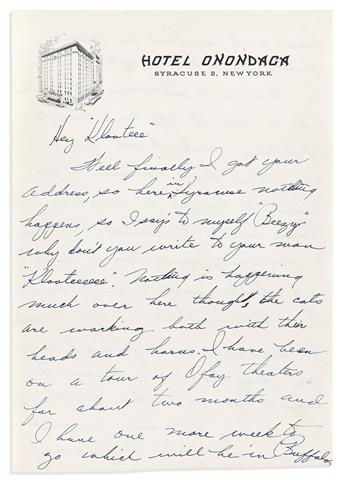 HOTEL ONONDAGA
SYRACUSE 2, NEW YORK
Hey "Klooteee"
Well finally I got your
address, so here in Syracuse nothing
happens, so I says to myself "Beezy"
why don't you write to your man
"Klooteeeee". Nothing is happening
much over here though, the cats
are working both with their
heads and horns. I have been
on a tour of Ofay theaters
for about two months and
I have one more week to
go which will be in Buffalo,